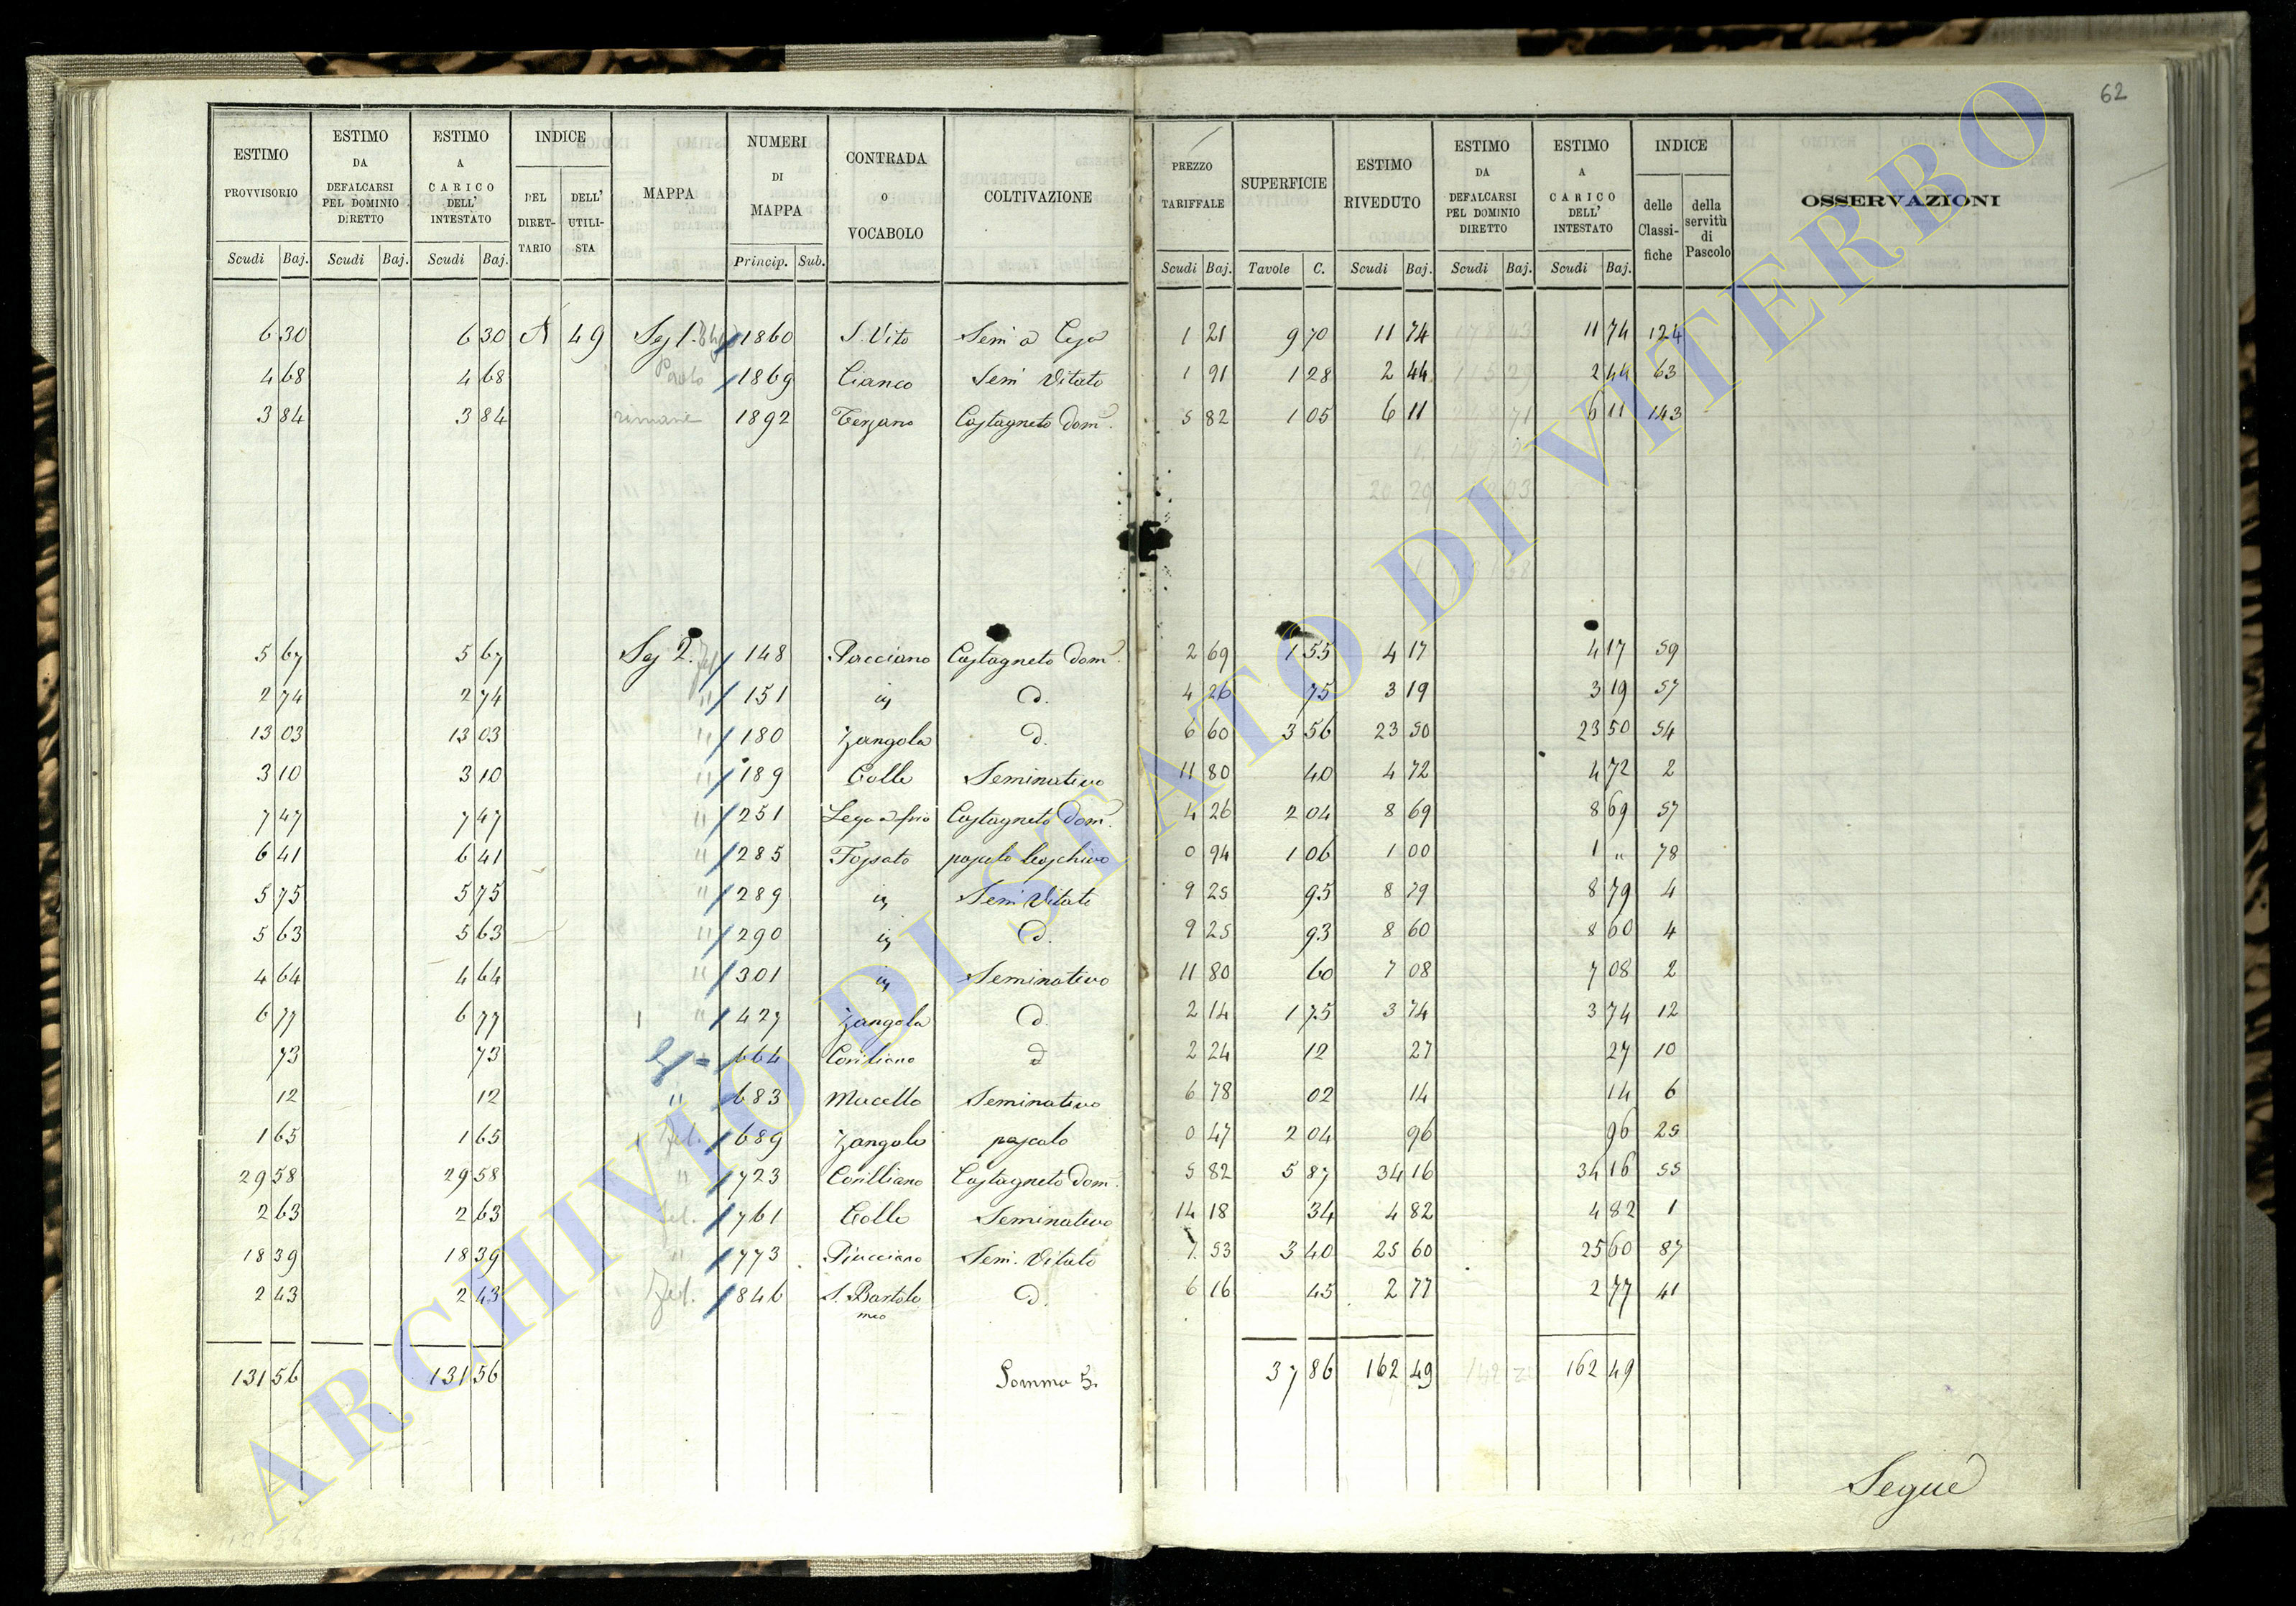 62
ESTIMO PROVVISORIO | ESTIMO DA DEFALCARSI PEL DOMINIO DIRETTO | ESTIMO A CARICO DELL' INTESTATO | INDICE | MAPPA | NUMERI DI MAPPA | CONTRADA o VOCABOLO | COLTIVAZIONE | PREZZO TARIFFALE | SUPERFICIE | ESTIMO RIVEDUTO | ESTIMO DA DEFALCARSI PEL DOMINIO DIRETTO | ESTIMO A CARICO DELL' INTESTATO | INDICE | OSSERVAZIONI
DEL DIRETTARIO | DELL' UTILISTA | delle Classifiche | della servitù di Pascolo
Scudi Baj. | Scudi Baj. | Scudi Baj. | Princip. Sub. | Scudi Baj. | Tavole C. | Scudi Baj. | Scudi Baj. | Scudi Baj.
6 30 | 6 30 | A | 49 | Sez 1. | 1860 | S. Vito | Sem a Ceja | 1 21 | 9 70 | 11 74 | 11 74 | 124
4 68 | 4 68 | Paolo | 1869 | Cianco | Sem Vitato | 1 91 | 1 28 | 2 44 | 2 44 | 63
3 84 | 3 84 | rimane | 1892 | Terzano | Castagneto dom. | 5 82 | 1 05 | 6 11 | 6 11 | 143
5 67 | 5 67 | Sez 2. | 148 | Pacciano | Castagneto dom. | 2 69 | 1 55 | 4 17 | 4 17 | 59
2 74 | 2 74 | " | 151 | id | d. | 4 26 | 75 | 3 19 | 3 19 | 57
13 03 | 13 03 | " | 180 | Zangola | d. | 6 60 | 3 56 | 23 50 | 23 50 | 54
3 10 | 3 10 | " | 189 | Colle | Seminativo | 11 80 | 40 | 4 72 | 4 72 | 2
7 47 | 7 47 | " | 251 | Castagneto dom. | 4 26 | 2 04 | 8 69 | 8 69 | 57
6 41 | 6 41 | " | 285 | Fossato | pascolo boschivo | 0 94 | 1 06 | 1 00 | 1 " | 78
5 75 | 5 75 | " | 289 | id | Sem Vitato | 9 25 | 95 | 8 79 | 8 79 | 4
5 63 | 5 63 | " | 290 | id | d. | 9 25 | 93 | 8 60 | 8 60 | 4
4 64 | 4 64 | " | 301 | id | Seminativo | 11 80 | 60 | 7 08 | 7 08 | 2
6 77 | 6 77 | " | 427 | Zangola | d. | 2 14 | 1 75 | 3 74 | 3 74 | 12
73 | 73 | 664 | Coviliano | d | 2 24 | 12 | 27 | 27 | 10
12 | 12 | " | 683 | Macello | Seminativo | 6 78 | 02 | 14 | 14 | 6
1 65 | 1 65 | Fel. | 689 | Zangola | pascolo | 0 47 | 2 04 | 96 | 96 | 25
29 58 | 29 58 | " | 723 | Corilliano | Castagneto dom. | 5 82 | 5 87 | 34 16 | 34 16 | 55
2 63 | 2 63 | Fel. | 761 | Colle | Seminativo | 14 18 | 34 | 4 82 | 4 82 | 1
18 39 | 18 39 | " | 773 | Piacciano | Sem. Vitato | 7 53 | 3 40 | 25 60 | 25 60 | 87
2 43 | 2 43 | Fel. | 846 | S. Bartolomeo | d. | 6 16 | 45 | 2 77 | 2 77 | 41
131 56 | 131 56 | Somma 5. | 37 86 | 162 49 | 162 49
Segue
ARCHIVIO DI STATO DI VITERBO